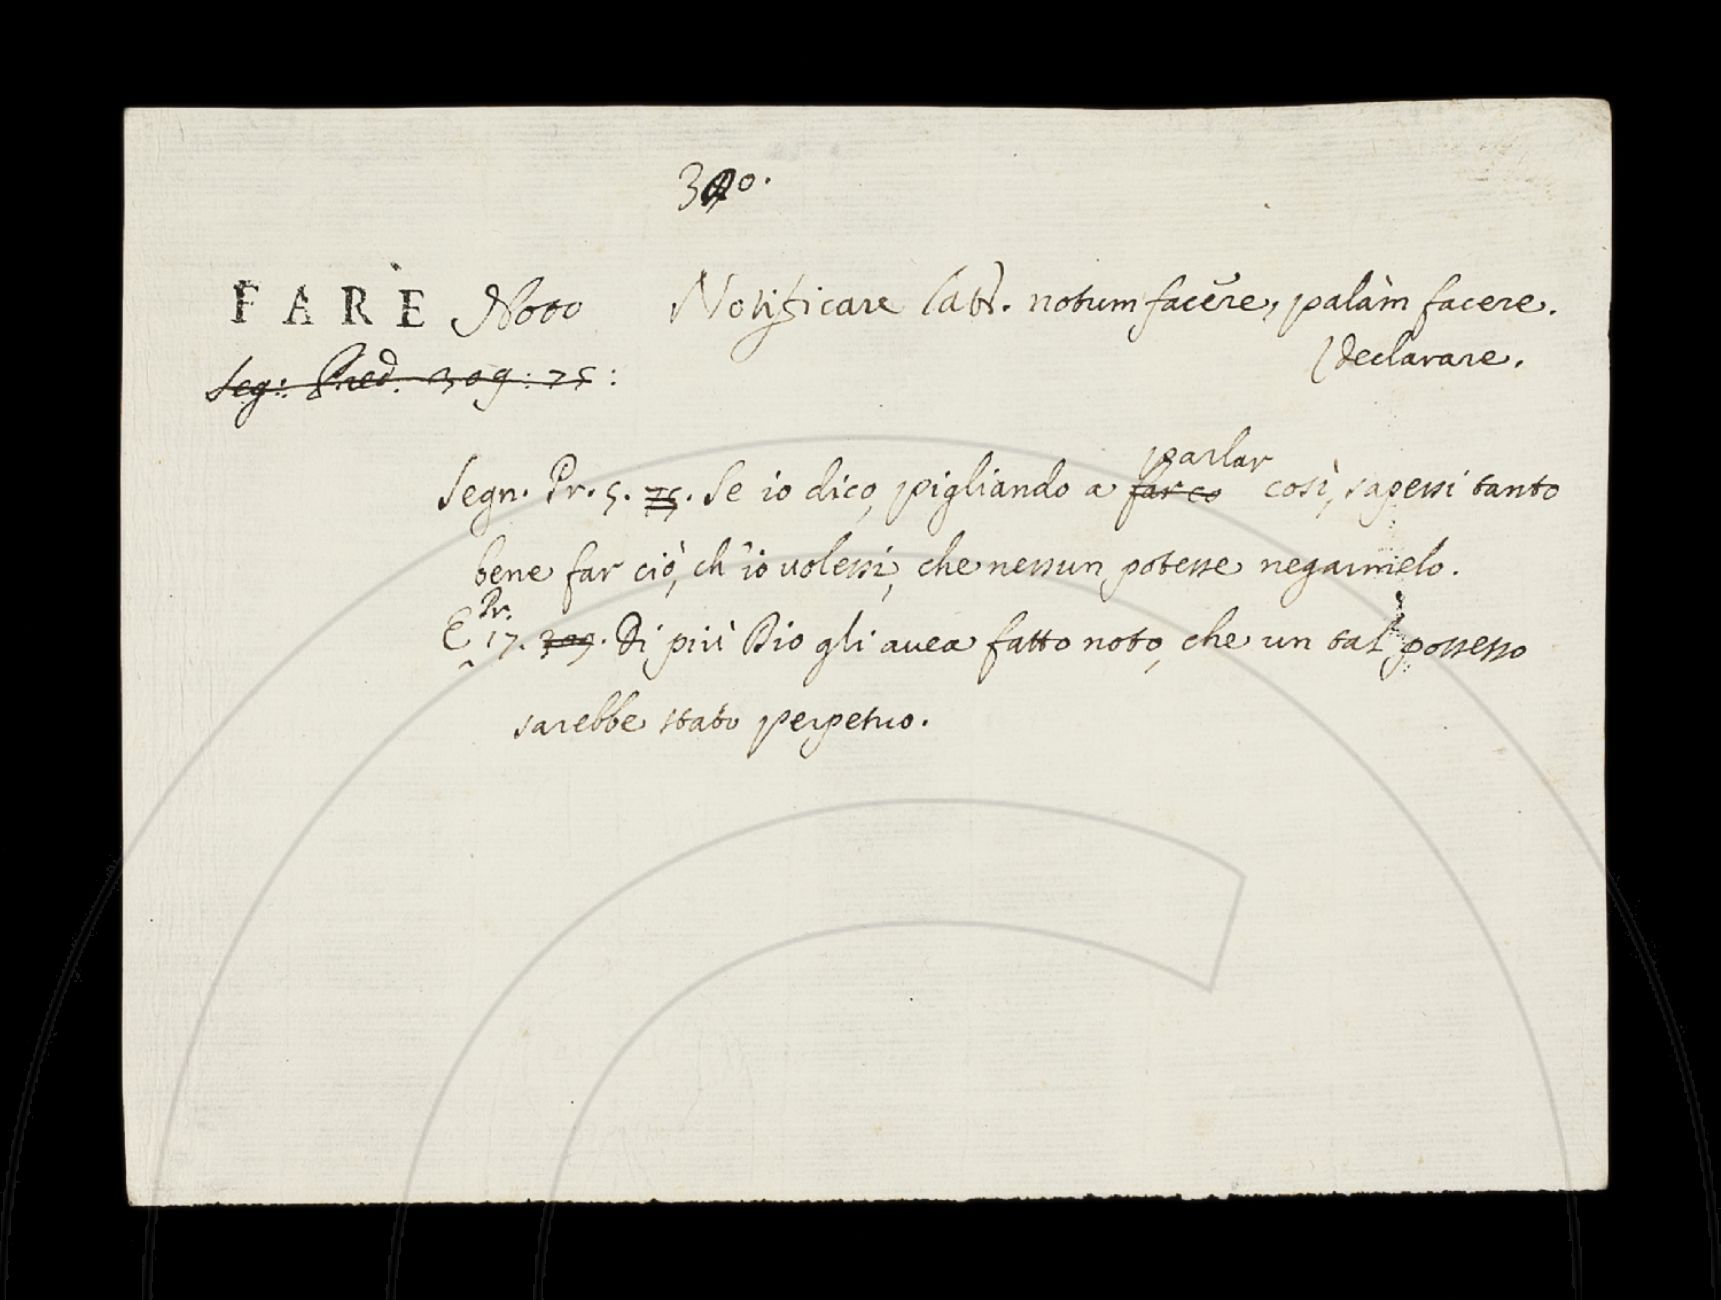 FARE Noto Notificare latt. notum facĕre, palàm facere.
declarare.
Seg: Pred. 309: 75:
parlar
Segn. Pr. 5. 75. Se io dico, pigliando a far co così, sapessi tanto
bene far ciò, ch'io volessi, che nessun potesse negarmelo.
Pr.
E 17. 309. Di più Dio gli avea fatto noto, che un tal possesso
sarebbe stato perpetuo.